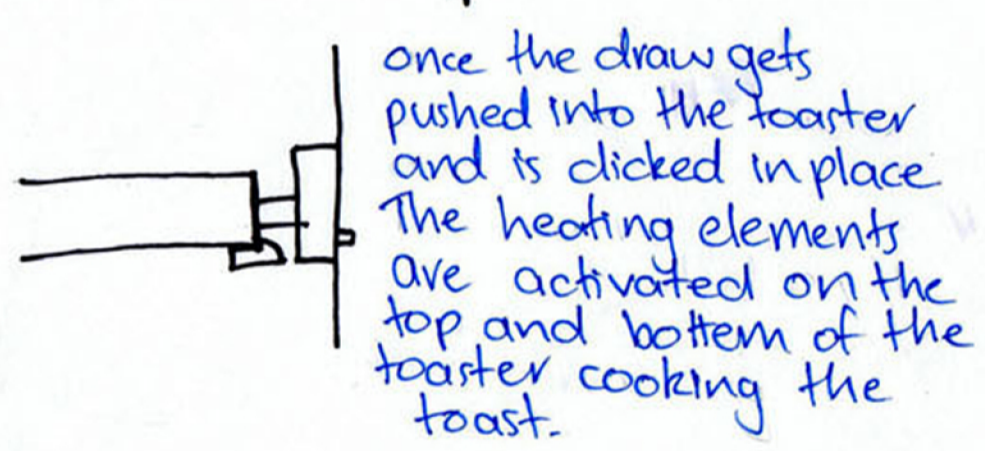 once the draw gets
pushed into the toaster
and is clicked in place
The heating elements
are activated on the
top and bottem of the
toaster cooking the
toast.